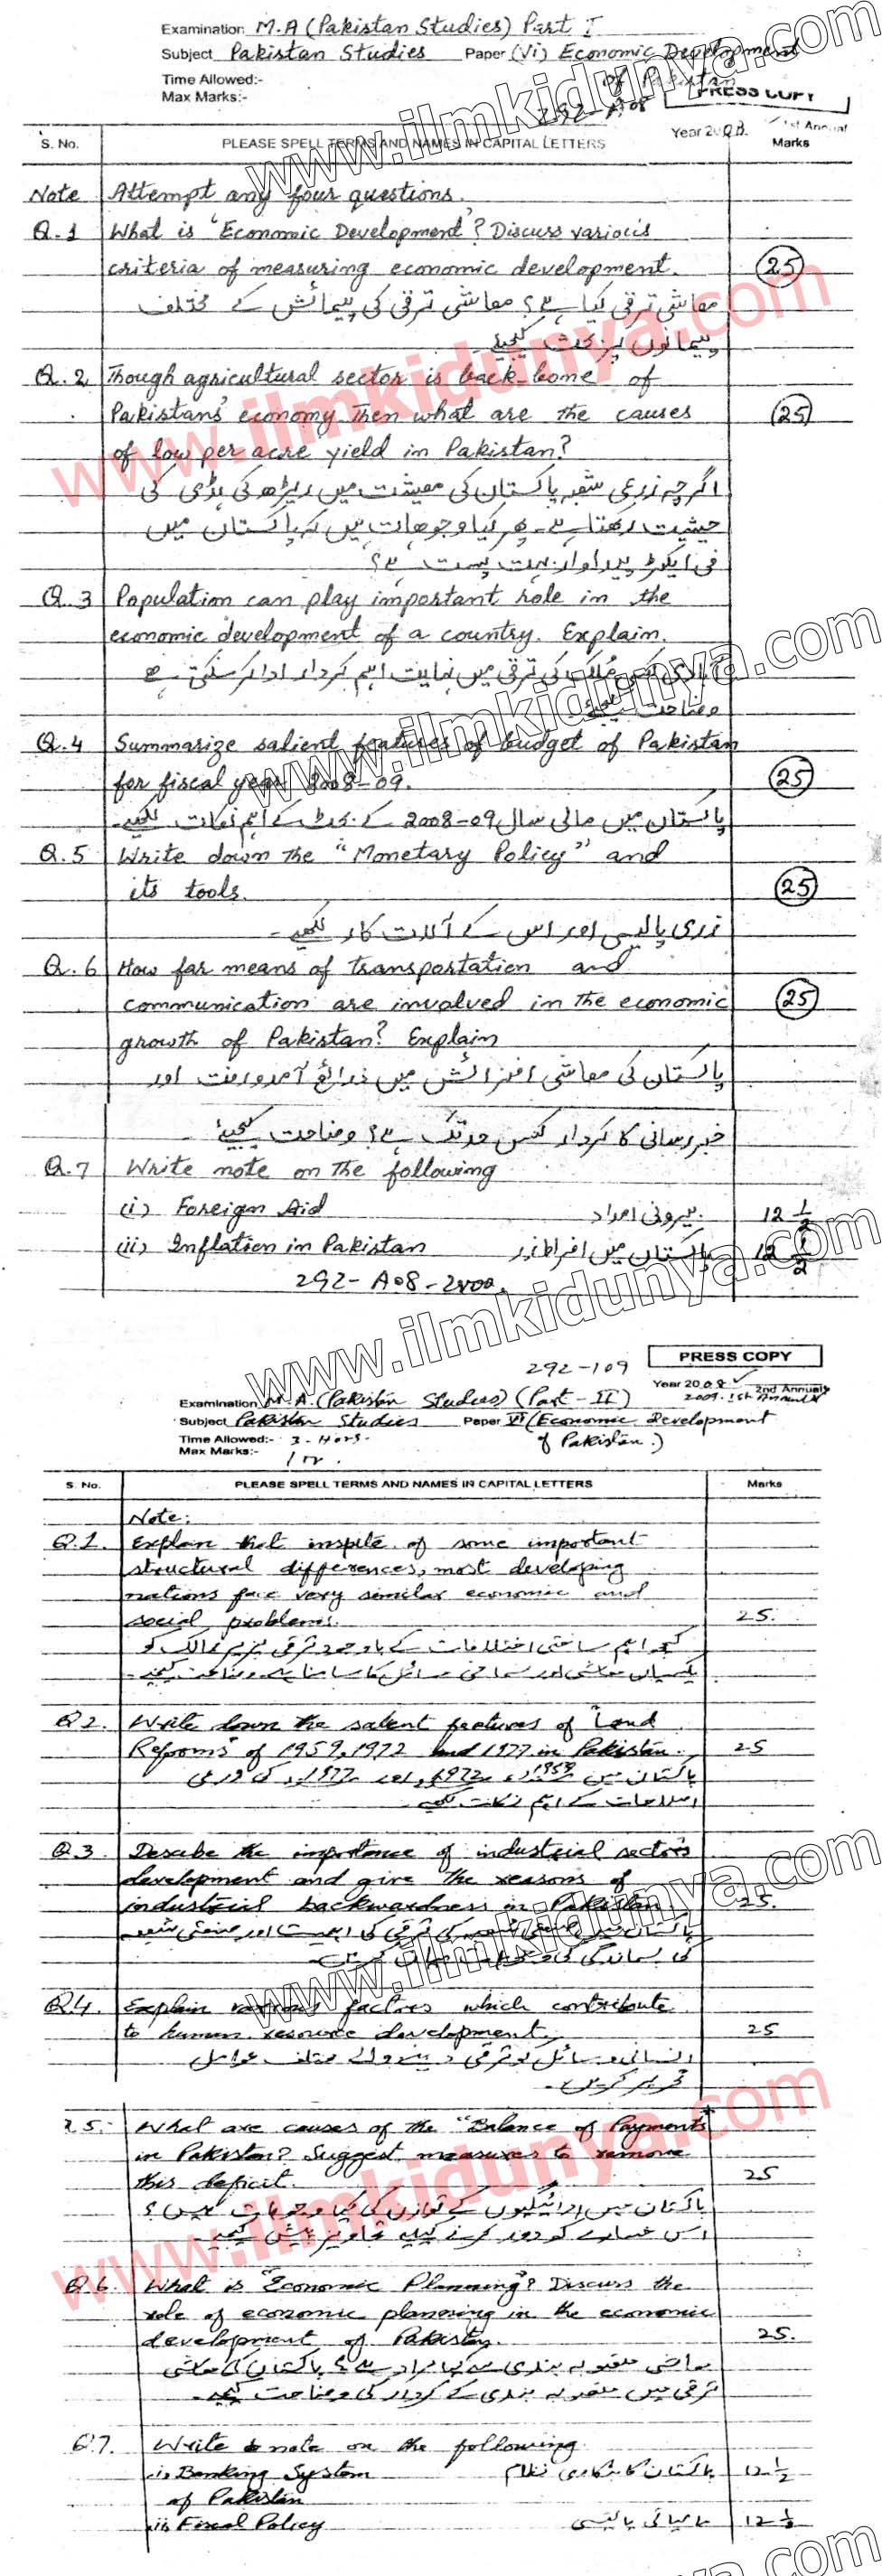 Examination M.A (Pakistan Studies) Part I
Subject Pakistan Studies Paper (Vi) Economic Development
of Pakistan
Time Allowed:-
Max Marks:-
292-A08
PRESS COPY
Year 2008. 1st Annual
S. No. PLEASE SPELL TERMS AND NAMES IN CAPITAL LETTERS Marks
Note Attempt any four questions.
Q.1 What is "Economic Development"? Discuss various
criteria of measuring economic development. 25
معاشی ترقی کیا ہے؟ معاشی ترقی کی پیمائش کے مختلف
پیمانوں پر بحث کیجیئے
Q.2 Though agricultural sector is back-bone of
Pakistans' economy then what are the causes 25
of low per acre yield in Pakistan?
اگرچہ زرعی شعبہ پاکستان کی معیشت میں ریڑھ کی ہڈی کی
حیثیت رکھتا ہے۔ پھر کیا وجوھات ہیں کہ پاکستان میں
فی ایکڑ پیداوار بہت پست ہے؟
Q.3 Population can play important role in the
economic development of a country. Explain.
آبادی کسی ملک کی ترقی میں نہایت اہم کردار ادا کر سکتی ہے
وضاحت کیجیئے
Q.4 Summarize salient features of budget of Pakistan
for fiscal year 2008-09. 25
پاکستان میں مالی سال 09-2008 کے بجٹ کے اہم نکات لکھیے۔
Q.5 Write down the "Monetary Policy" and
its tools. 25
زری پالیسی اور اس کے آلات کار لکھیے۔
Q.6 How far means of transportation and
communication are involved in the economic 25
growth of Pakistan? Explain
پاکستان کی معاشی افزائش میں ذرائع آمدورفت اور
خبررسانی کا کردار کس حد تک ہے؟ وضاحت کیجیئے۔
Q.7 Write note on the following
(i) Foreign Aid بیرونی امداد 12 1/2
(ii) Inflation in Pakistan پاکستان میں افراط زر 12 1/2
292-A08-2400.
292-109
PRESS COPY
Year 2008 2nd Annual
2009. 1st Annual
Examination M.A. (Pakistan Studies) (Part-II)
Subject Pakistan Studies Paper VI (Economic development
of Pakistan.)
Time Allowed:- 3-Hors-
Max Marks:- 100.
S. No. PLEASE SPELL TERMS AND NAMES IN CAPITAL LETTERS Marks
Note:
Q.1. Explain that inspite of some important
structural differences, most developing
nations face very similar economic and
social problems. 25.
کچھ اہم ساختی اختلافات کے باوجود ترقی پزیر ممالک کو
یکساں معاشی اور سماجی مسائل کا سامنا ہے۔ وضاحت کیجیے۔
Q2. Write down the salent features of "Land
Reforms" of 1959, 1972 and 1977 in Pakistan. 25
پاکستان میں 1959ء، 1972ء اور 1977ء کی زرعی
اصلاحات کے اہم نکات لکھیے۔
Q.3. Describe the importance of industrial sector's
development and give the reasons of
industrial backwardness in Pakistan 25.
پاکستان میں صنعتی شعبہ کی ترقی کی اہمیت اور صنعتی شعبہ
کی پسماندگی کی وجوہات بیان کریں۔
Q4. Explain various factors which contribute
to human resource development. 25
انسانی وسائل کو ترقی دینے والے مختلف عوامل
تحریر کریں۔
25. What are causes of the "Balance of Payments"
in Pakistan? Suggest measures to remove
this deficit. 25
پاکستان میں ادائیگیوں کے توازن کی کیا وجوہات ہیں؟
اس خسارے کو دور کرنے کیلیے تجاویز پیش کیجیے۔
Q.6. What is "Economic Planning"? Discuss the
role of economic planning in the economic
development of Pakistan. 25.
معاشی منصوبہ بندی سے کیا مراد ہے؟ پاکستان کی معاشی
ترقی میں منصوبہ بندی کے کردار کی وضاحت کیجیے۔
Q.7. Write a note on the following
i) Banking System پاکستان کا بنکاری نظام 12 1/2
of Pakistan
ii) Fiscal Policy مالیاتی پالیسی 12 1/2
www.ilmkidunya.com
www.ilmkidunya.com
www.ilmkidunya.com
www.ilmkidunya.com
www.ilmkidunya.com
www.ilmkidunya.com